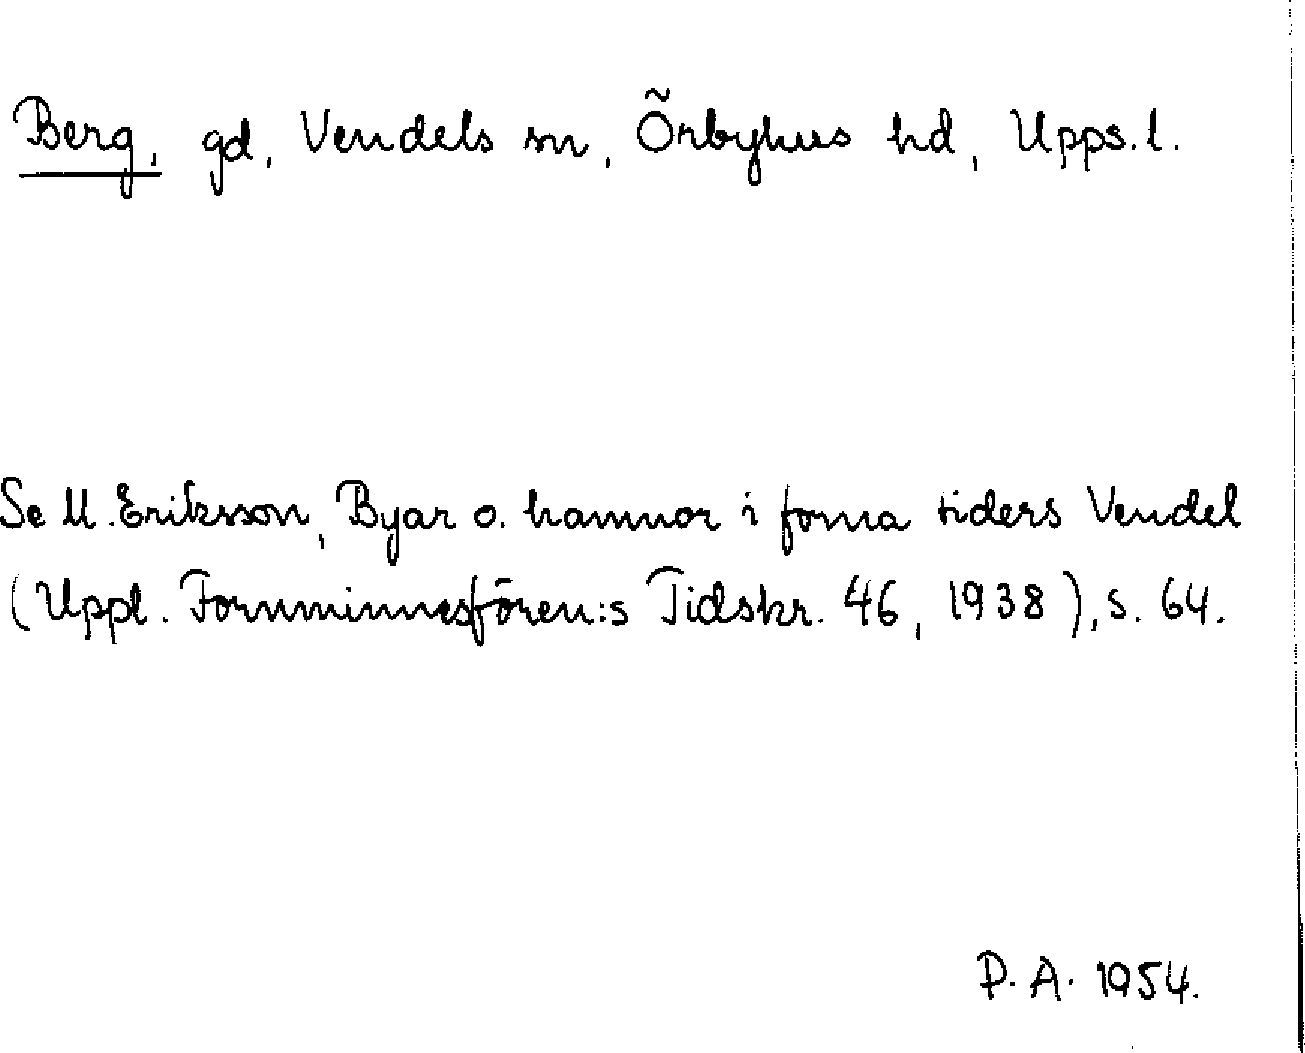 Berg, gd, Vendels sn, Örbyhus hd, Upps. l.
Se M. Eriksson, Byar o. hamnor i forna tiders Vendel
(Uppl. Fornminnesfören:s Tidskr. 46, 1938), s. 64.
P. A. 1954.